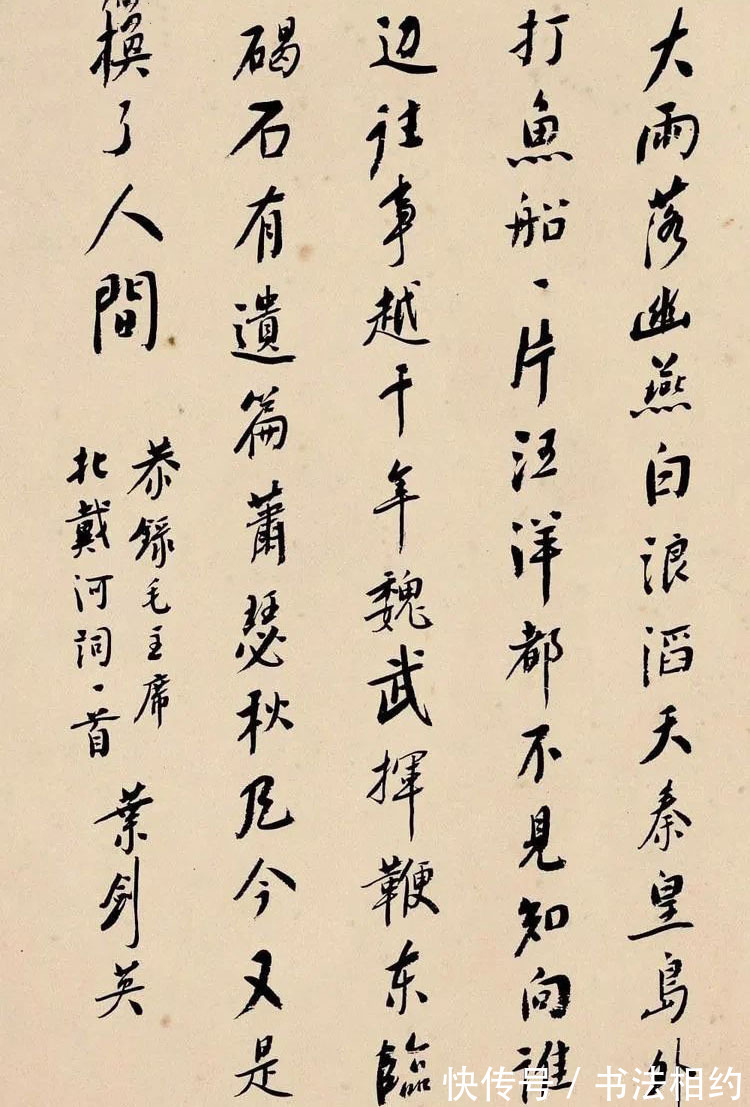 大雨落幽燕白浪滔天秦皇島外
打魚船一片汪洋都不見知向誰
边往事越千年魏武揮鞭东臨
碣石有遺篇蕭瑟秋风今又是
换了人間
恭録毛主席
北戴河词一首
葉剑英
快传号 / 书法相约